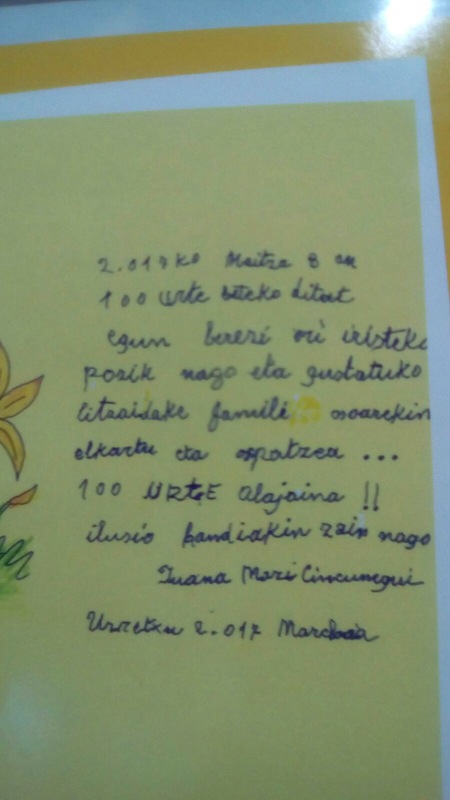 2.017ko Maitza 8 an
100 urte beteko ditut
egun berezi ori iristeko
pozik nago eta gustatuko
litzaidake famili osoarekin
elkartu eta ospatzea ...
100 URTE alajaina !!
ilusio handiakin zain nago
Juana Mari Cincunegui
Urretxu 2.017